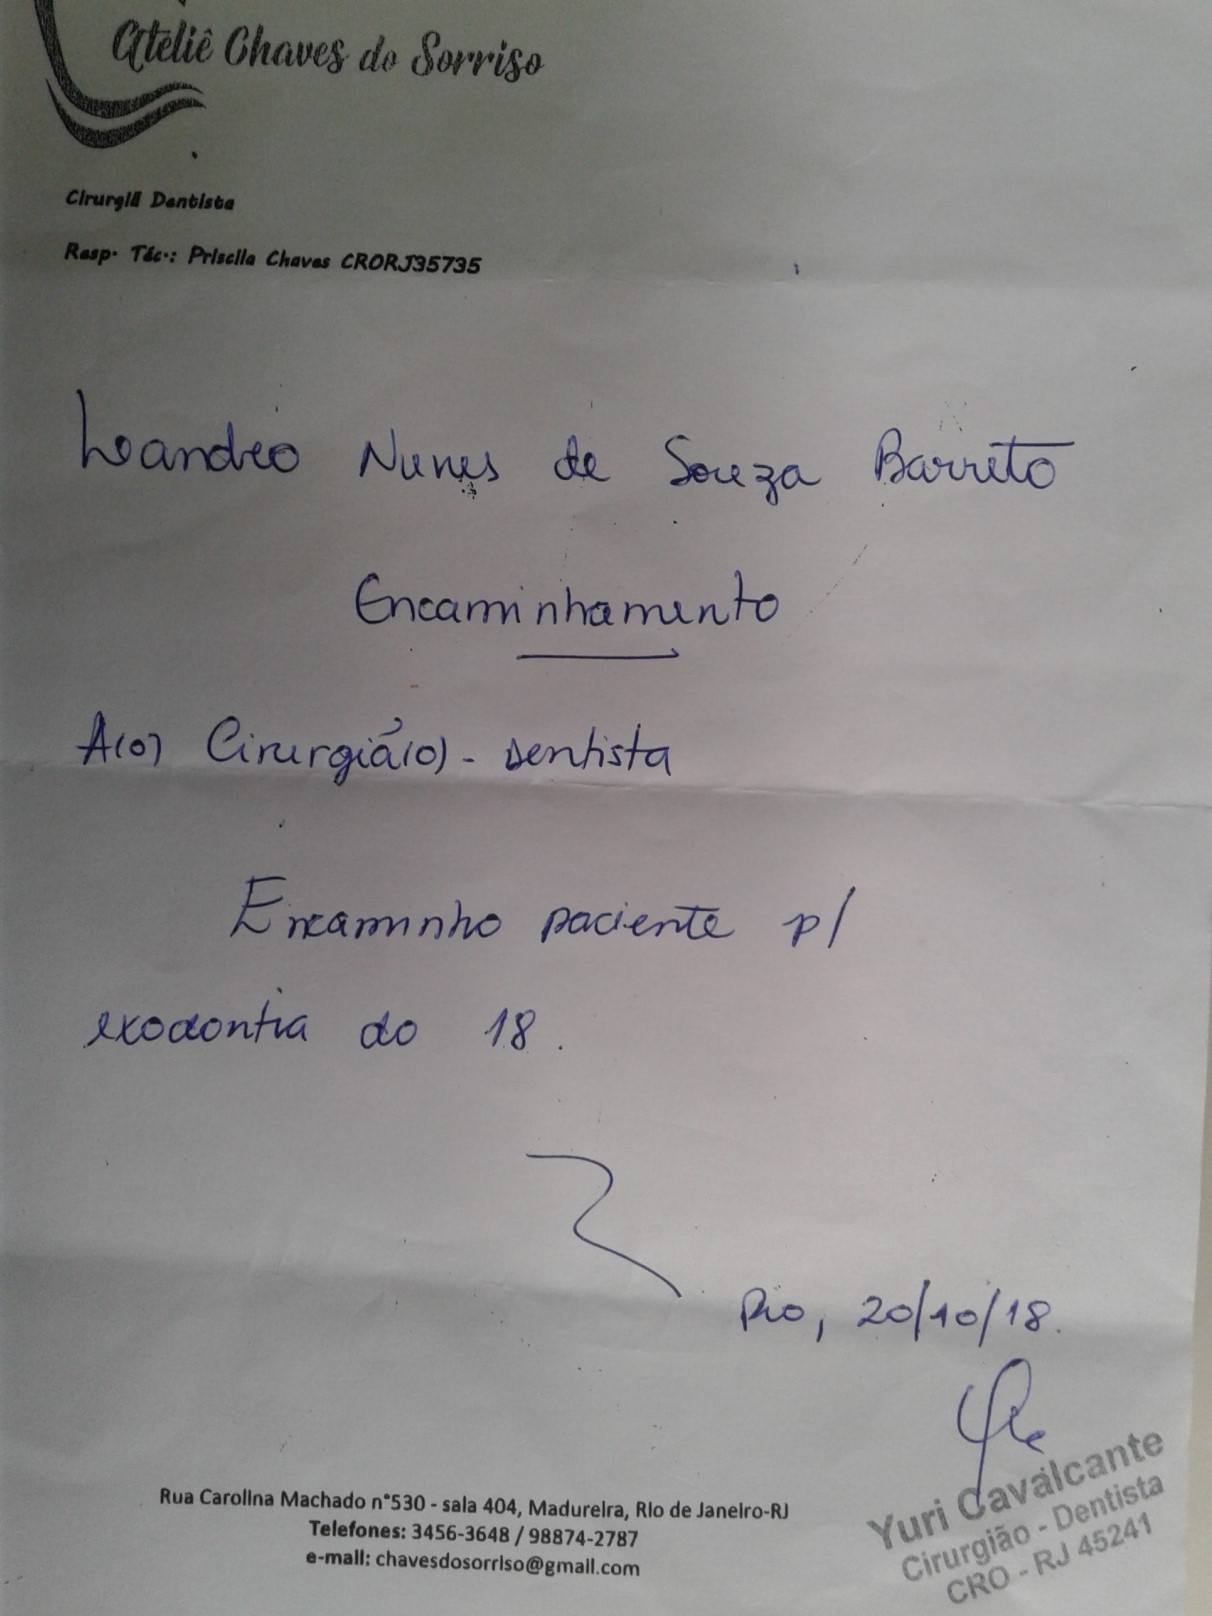 Ateliê Chaves do Sorriso
Cirurgiã Dentista
Resp. Téc.: Priscila Chaves CRORJ35735
Leandro Nunes de Souza Barreto
Encaminhamento
A(o) Cirurgiã(o) - Dentista
Encaminho paciente p/
exodontia do 18.
Rio, 20/10/18.
Yuri Cavalcante
Cirurgião - Dentista
CRO - RJ 45241
Rua Carolina Machado n°530 - sala 404, Madureira, Rio de Janeiro-RJ
Telefones: 3456-3648 / 98874-2787
e-mail: chavesdosorriso@gmail.com